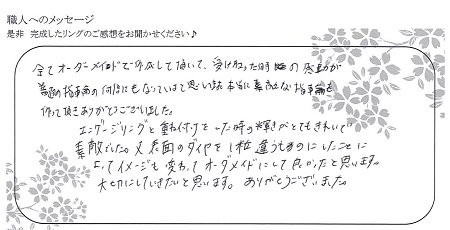 職人へのメッセージ
是非 完成したリングのご感想をお聞かせください♪
全てオーダーメイドで作成して頂いて、受け取った時の感動が
指輪の何倍にもなっていて思い
本当に素敵な指輪を
作って頂きありがとうございました。
エンゲージリングと重ね付けをした時の輝きがとてもきれいで
素敵でした。又、表面のダイヤを1粒違うものにしたことに
よってイメージも変わってオーダーメイドにして良かったと思います。
大切にしていきたいと思います。ありがとうございました。